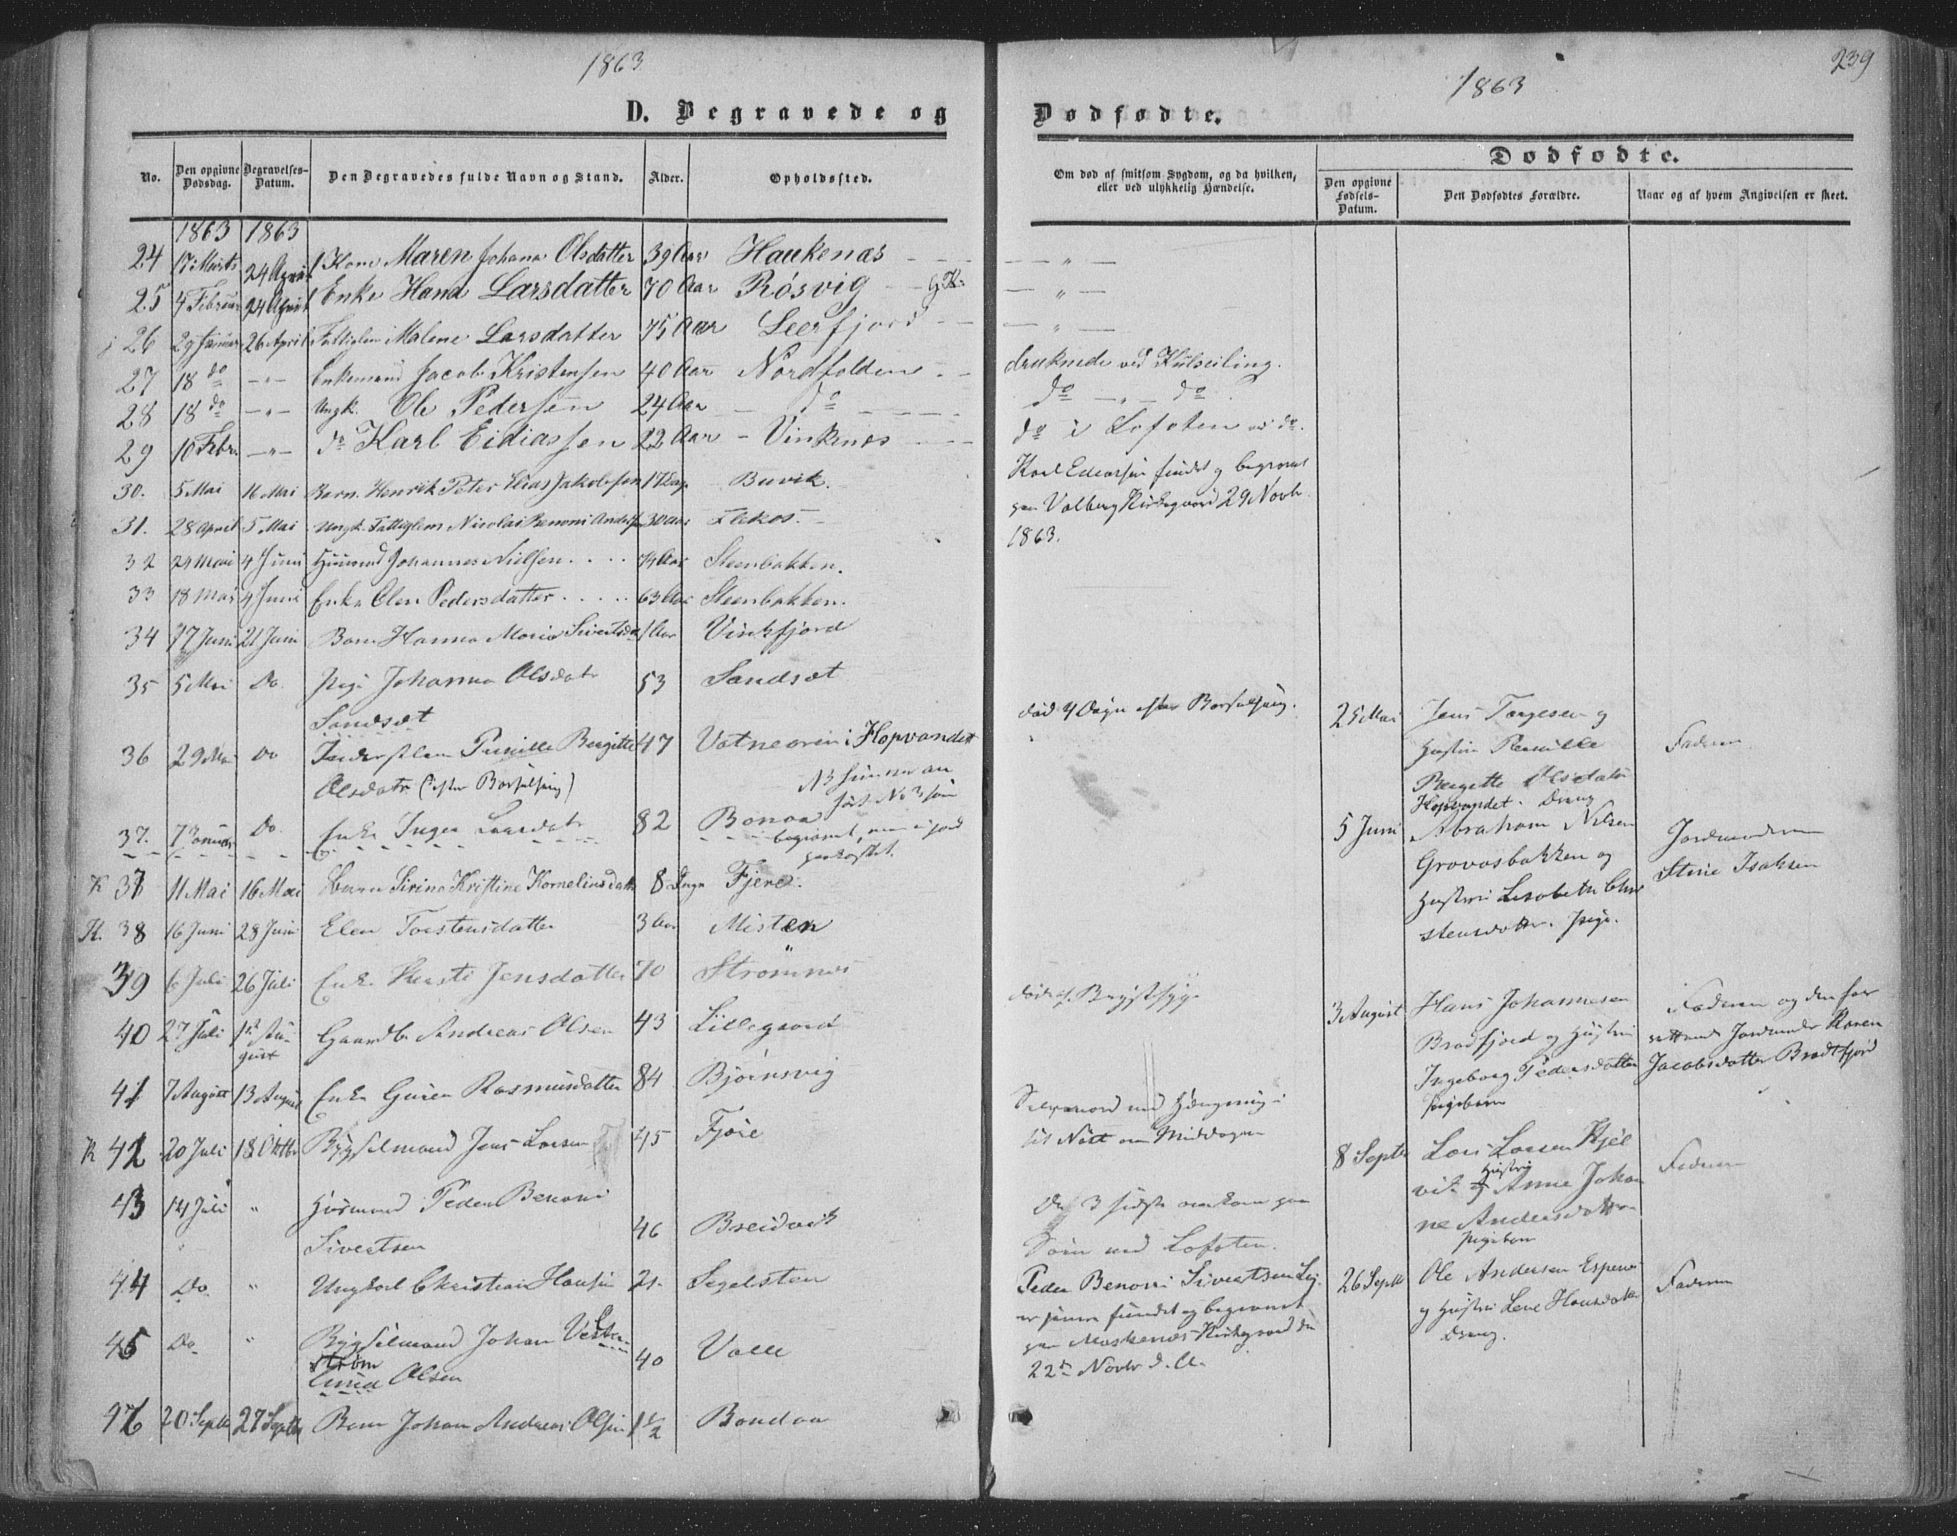 1863
D. Begravede og
No. Den opgivne Dødsdag. Begravelses-Datum. Den Begravedes fulde Navn og Stand. Alder. Opholdssted.
1863 1863
24 17 Marts 24 April Kone Maren Johana Olsdatter 39 Aar Haukenæs
25 4 Februar 24 April Enke Hana Larsdatter 70 Aar Røsvig
26 29 Januar 26 April Fattiglem Malene Larsdatter 75 Aar Leerfjord
27 18 do — " — Enkemand Jacob Kristensen 40 Aar Nordfolden
28 18 do — " — Ungk. Ole Pedersen 24 Aar do
29 10 Febr. — " — do Karl Eidiassen 22 Aar Vinkenes
30. 5 Mai 16 Mai Barn Henrik Peter Elias Jakobsen Buvik.
31. 28 April 5 Mai Ungk. Fattiglem Nicolai Benoni Anders 30 Aar
32 24 Mai 4 Juni Huusmd Johannes Nielsen 74 Aar Steenbakken.
33 18 Mai 4 Juni Enke Olen Pedersdatter 63 Aar Steenbakken.
34 17 Juni 21 Juni Barn Hanna Maria Sivertsd 1 Aar Vinkfjord
35 5 Mai Do Pige Johanna Olsdatr 53 Sandsæt
Sandsæt
36 29 Mai Do Inderstlem Pernille Bergitte 47 Vatneøren i Hopvandet
Olsdatr (efter Barselseng)
37. 7 Januar Do. Enke Inger Larsdatr 82 Bonaa
K 37 11 Mai 16 Mai Barn Sirina Kristine Kornelius datt 8 Dage Fjære.
K. 38 16 Juni 28 Juni Elen Torstensdatter 3 Aar Misten
39 6 Juli 26 Juli Enke Kersti Jensdatter 70 Strømnes
40 27 Juli 1st August Gaardbr Andreas Olsen 43 Lillegaard
41 7 August 13 August Enke Guren Rasmusdatter 84 Bjørnsvig
K 42 20 Juli 18 Oktbr Bygselmand Jens Larsen 45 Fjære
43 14 Juli " Husmand Peder Benoni
Sivertsen 46 Breidvik
44 Do " Ungkarl Christian Hansen 21 Segelsten
45 Do " Bygselmand Johan Vester
strøm
Olsen 40 Valle
46 20 Septb 27 Septbr Barn Johan Andreas Olsen 1 1/2 Bondaa
1863
239
Dødfødte.
Om død af smitsom Sygdom, og da hvilken, eller ved ulykkelig Hændelse.
Dødfødte.
Den opgivne Fødsels-Datum. Den Dødfødtes Forældre. Naar og af hvem Angivelsen er skeet.
— " —
— " —
— " —
druknede ved Kulseiling.
do — " — do
do i Lofoten ved do.
Karl Ediassen fundet og begravet
paa Valberg Kirkegaard 29 Novb.
1863.
død 4 Dage efter Barselseng.
25 Mai Jens Torgesen og
Hustru Pernille Faderen
Bergette Olsdatr
Hopvandet. Dreng
5 Juni Abraham Nilsen Jordmoderen
Grovasbakken og Stine Isaksen
Hustru Lisabeth Chri
stensdatter. Pige.
død af Brystsyge
3 August Hans Johannesen Faderen og den for
Bradfjord og Hustru rettende Jordmoder Karen
Ingeborg Pedersdatter Jacobsdatter Bradtfjord
Pigebarn
Selvmord ved Hængning i
8 Septb Lars Larsen Kjel
vik og Hustru Anne Johan Faderen
ne Andersdatter
Pigebarn
De 3 sidste omkom paa
Søen ved Lofoten.
Peder Benoni Sivertsens Lig
er senere fundet og begravet
paa Moskenæs Kirkegaard den
22de Novbr d. A.
26 Septb Ole Andersen Espenes Faderen
og Hustru Lene Hansdatr
Dreng.